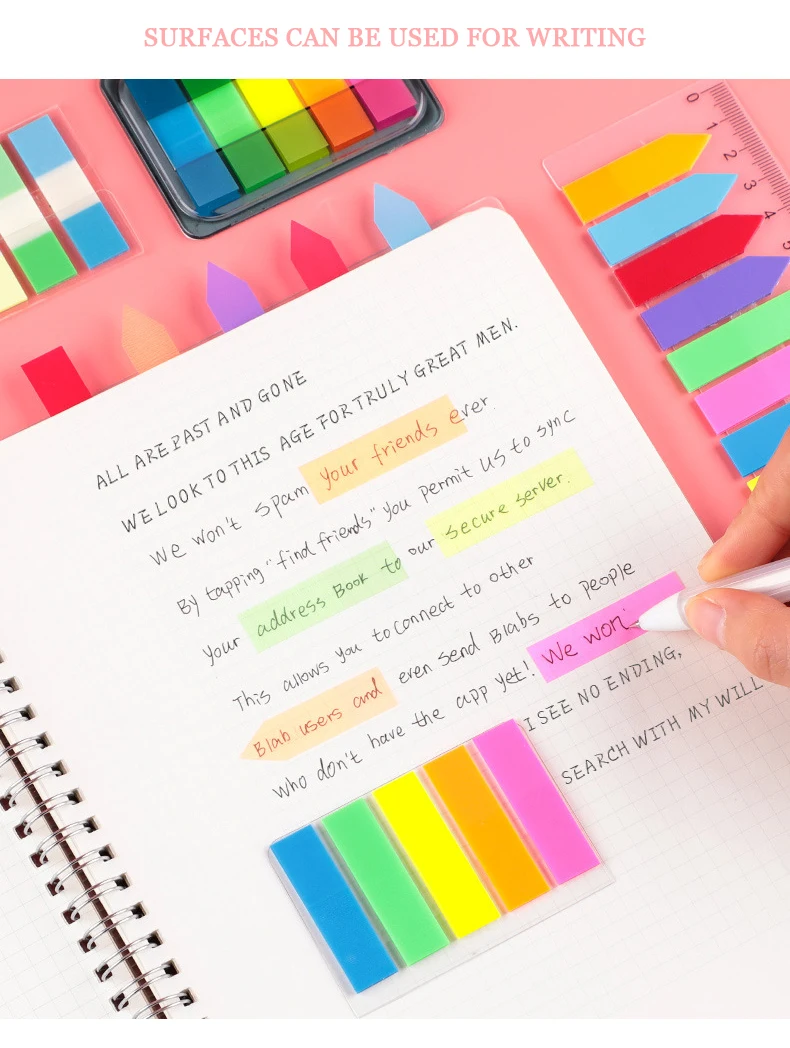 SURFACES CAN BE USED FOR WRITING
0
1
2
3
4
5
ALL ARE PAST AND GONE
WE LOOK TO THIS AGE FOR TRULY GREAT MEN.
We won't spam your friends ever.
By tapping "find friends" you permit us to sync
Your address Book to our secure server.
This allows you to connect to other
Blab users and even send Blabs to people
who don't have the app yet! We won'
I SEE NO ENDING,
SEARCH WITH MY WILL